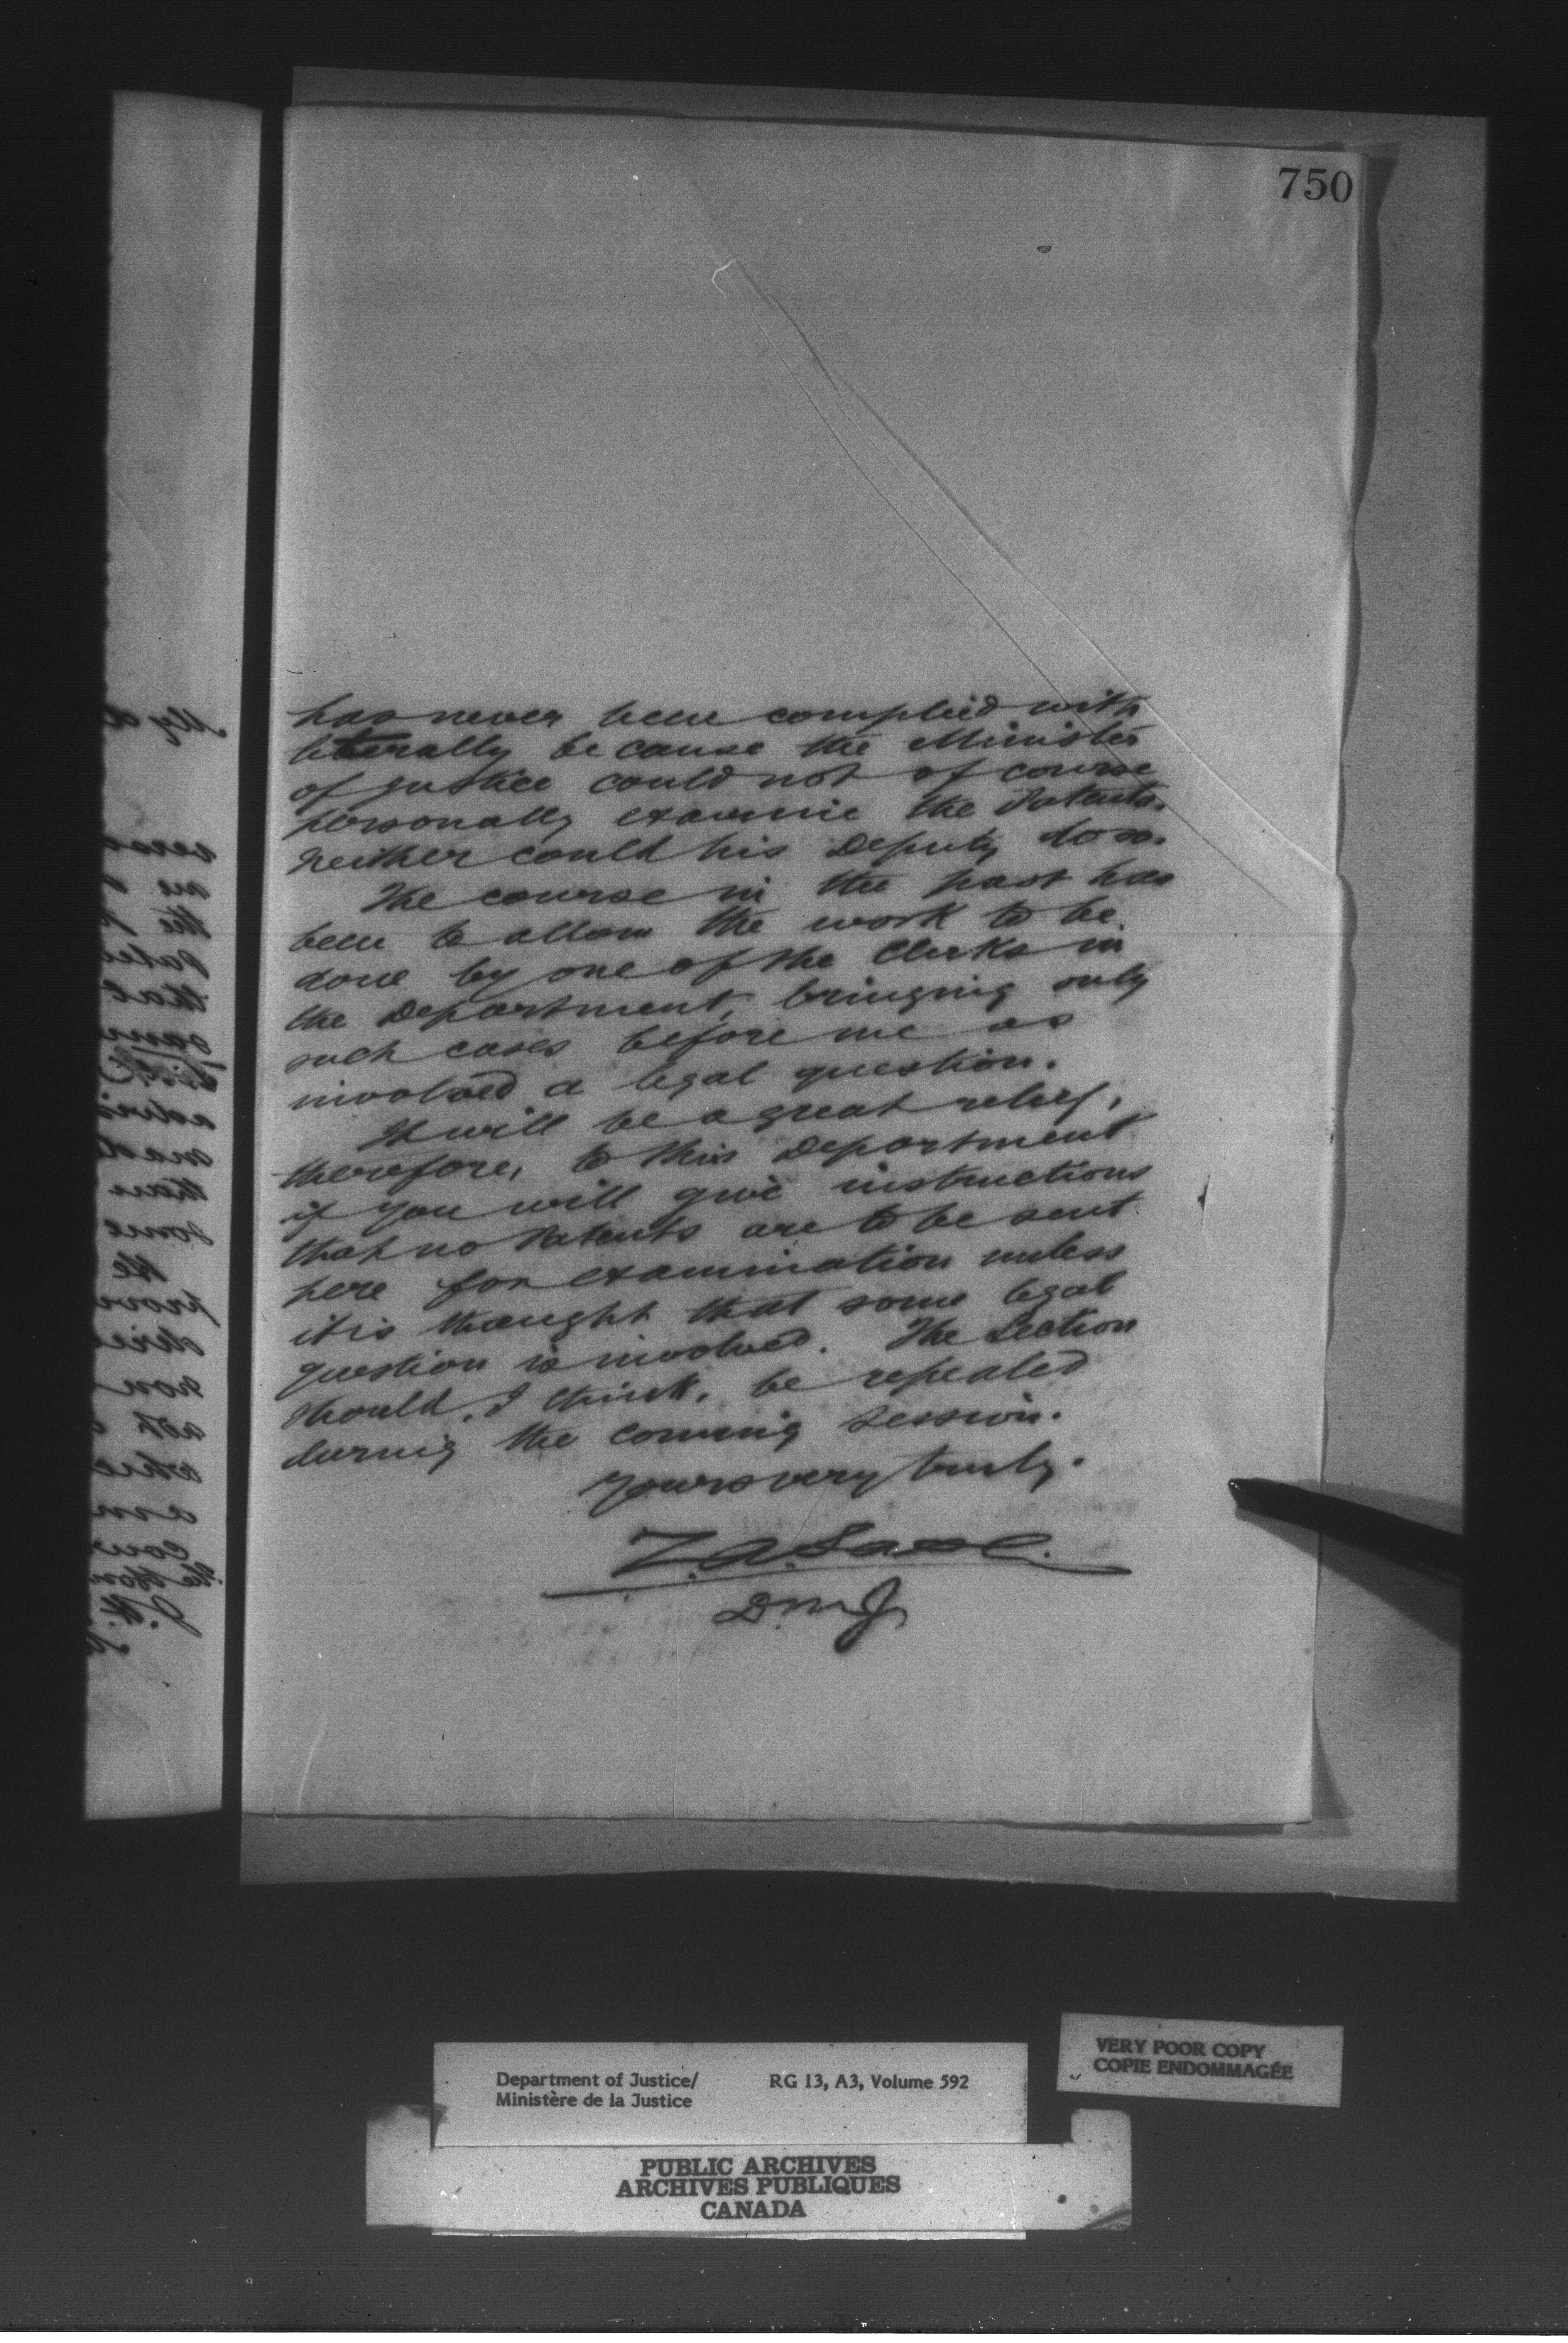 750
has never been complied with
literally because the Minister
of Justice could not of course
personally examine the Patents.
Neither could his Deputy do so.
The course in the past has
been to allow the work to be
done by one of the Clerks in
the Department, bringing only
such cases before me as
involved a legal question.
It will be a great relief,
therefore, to this Department
if you will give instructions
that no Patents are to be sent
here for examination unless
it is thought that some legal
question is involved. The Section
should, I think, be repealed
during the coming session.
Yours very truly.
Z. A. Lash.
D.M.J
Department of Justice/
Ministère de la Justice
RG 13, A3, Volume 592
VERY POOR COPY
COPIE ENDOMMAGÉE
PUBLIC ARCHIVES
ARCHIVES PUBLIQUES
CANADA